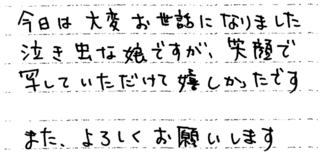 今日は大変お世話になりました
泣き虫な娘ですが、笑顔で
写していただけて嬉しかったです
また、よろしくお願いします